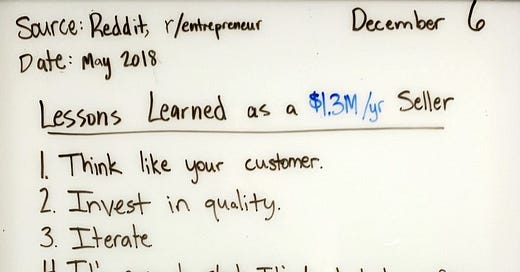 Source: Reddit, r/entrepreneur
December 6
Date: May 2018
Lessons Learned as a $1.3M/yr Seller
1. Think like your customer.
2. Invest in quality.
3. Iterate